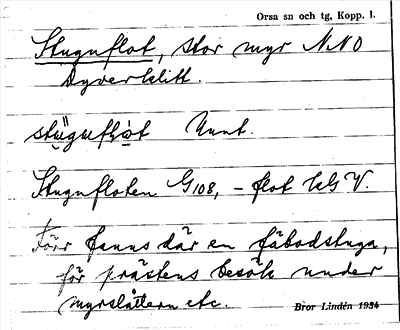 Orsa sn och tg, Kopp. l.
Stugnflot, stor myr N.N.O
Dyverklitt.
Uunt.
Stugnfloten G108, – flot
Förr fanns där en fäbodstuga,
för prästens besök under
myrslåttern etc.
Bror Lindén 1934